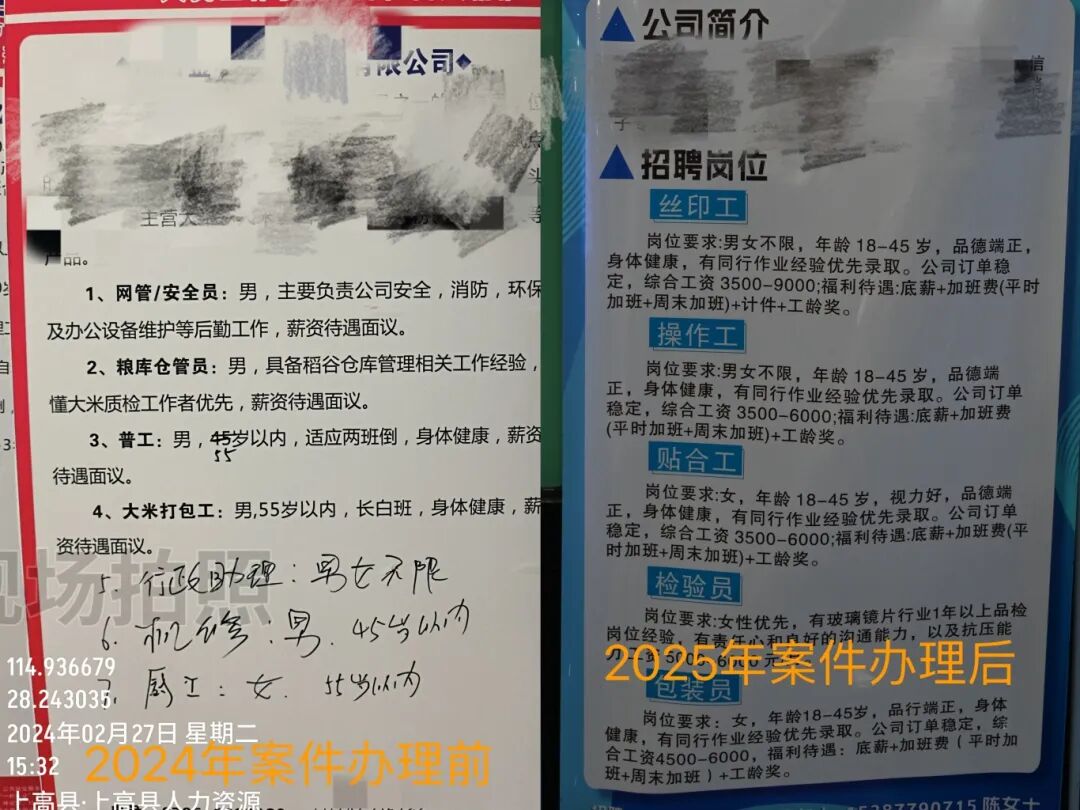 有限公司
主营大
产品。
1、网管/安全员：男，主要负责公司安全，消防，环保
及办公设备维护等后勤工作，薪资待遇面议。
2、粮库仓管员：男，具备稻谷仓库管理相关工作经验，
懂大米质检工作者优先，薪资待遇面议。
3、普工：男，45岁以内，适应两班倒，身体健康，薪资
55
待遇面议。
4、大米打包工：男,55岁以内，长白班，身体健康，薪
资待遇面议。
5、行政助理：男女不限
6、机修：男、45岁以内
7、厨工：女、55岁以内
现场拍照
114.936679
28.243035
2024年02月27日 星期二
15:32
上高县·上高县人力资源
2024年案件办理前
公司简介
信
子
招聘岗位
丝印工
岗位要求:男女不限，年龄 18-45 岁，品德端正，
身体健康，有同行作业经验优先录取。公司订单稳
定，综合工资 3500-9000;福利待遇:底薪+加班费(平时
加班+周末加班)+计件+工龄奖。
操作工
岗位要求:男女不限，年龄 18-45 岁，品德端
正，身体健康，有同行作业经验优先录取。公司订单
稳定，综合工资 3500-6000;福利待遇:底薪+加班费
(平时加班+周末加班)+工龄奖。
贴合工
岗位要求:女，年龄 18-45 岁，视力好，品德端
正，身体健康，有同行作业经验优先录取。公司订单
稳定，综合工资 3500-6000;福利待遇:底薪+加班费(平
时加班+周末加班)+工龄奖。
检验员
岗位要求:女性优先，有玻璃镜片行业1年以上品检
岗位经验，有责任心和良好的沟通能力，以及抗压能
2025年案件办理后
包装员
岗位要求：女，年龄18-45岁，品行端正，身体
健康，有同行作业经验优先录取。公司订单稳定，综
合工资4500-6000，福利待遇：底薪+加班费（平时加
班+周末加班）+工龄奖。
陈女士